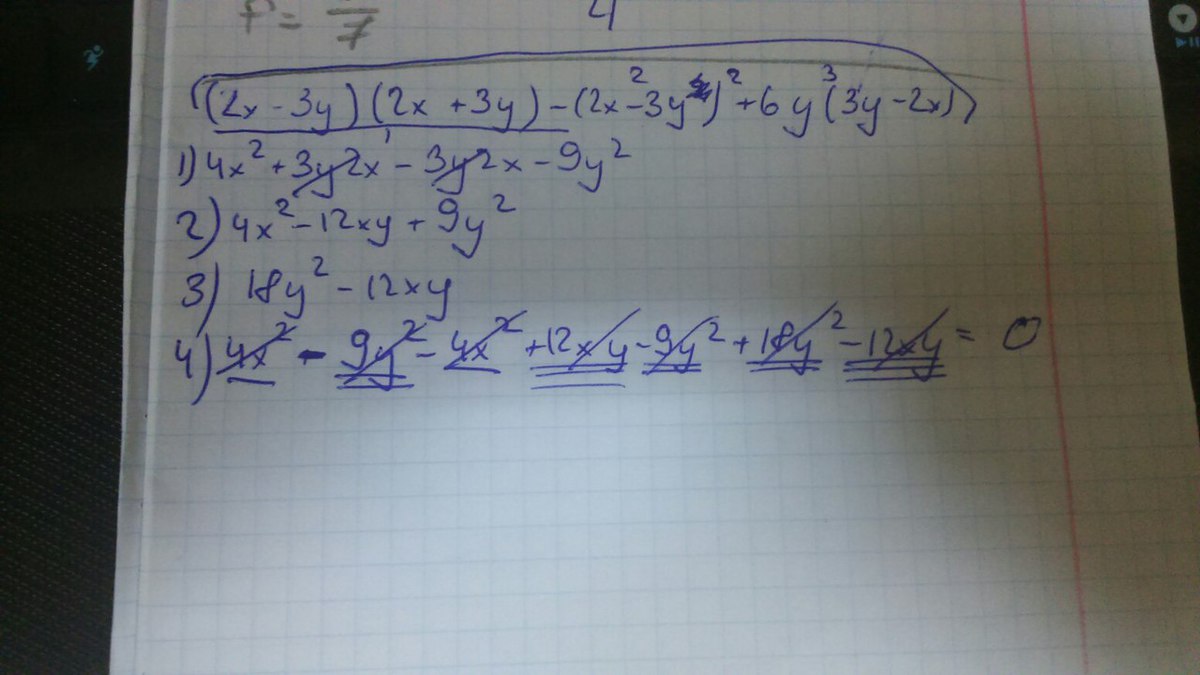 P = /7 4
(2x - 3y) (2x + 3y) - (2x - 3y)² + 6y (3y - 2x)
1) 4x² + 3y2x - 3y2x - 9y²
2) 4x² - 12xy + 9y²
3) 18y² - 12xy
4) 4x² - 9y² - 4x² + 12xy - 9y² + 18y² - 12xy = 0